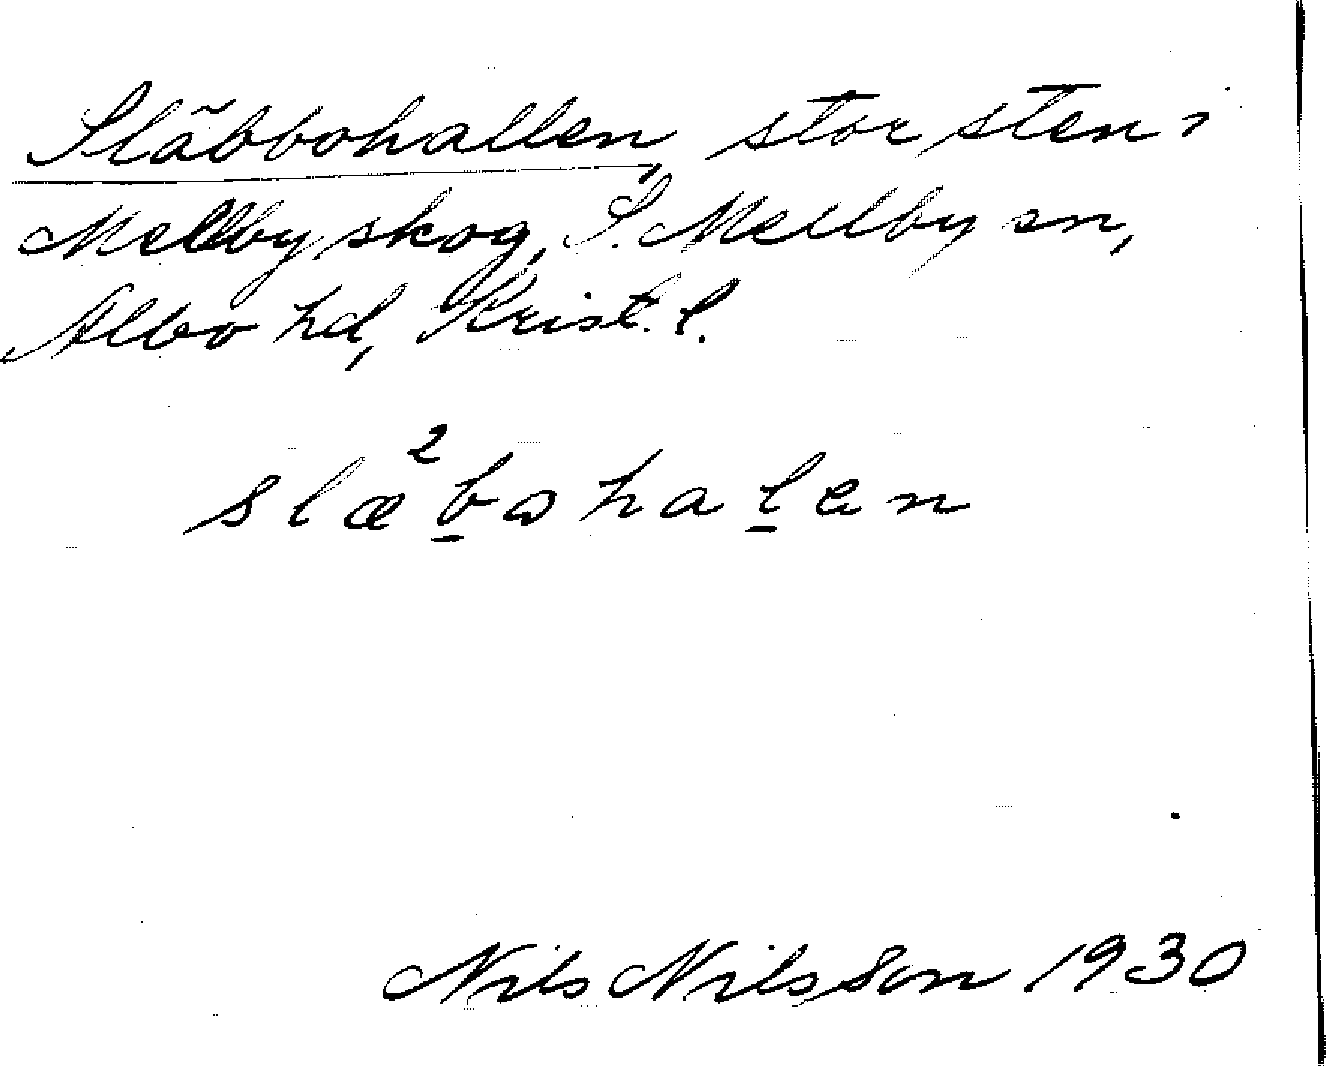 Släbbohallen, stor sten i
Mellby skog, S. Mellby sn,
Albo hd, Krist. l.
slæ²b̲ωhal̲en
Nils Nilsson 1930